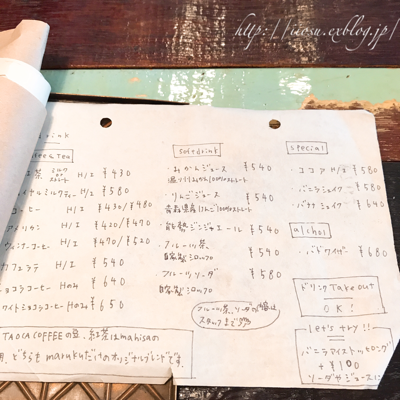 http://itosu.exblog.jp/
drink
ee & Tea
紅茶 ミルク or ストレート H/I ¥430
イヤルミルクティー H/I ¥580
コーヒー H/I ¥430/¥480
アメリカン H/I ¥420/¥470
ウィンナーコーヒー H/I ¥470/¥520
カフェラテ H/I ¥540
ショコラコーヒー Hのみ ¥640
ワイトショコラコーヒー Hのみ ¥650
TAOCA COFFEEの豆、紅茶はmahisaの
どちらもmarukuだけのオリジナルブレンドです。
soft drink
・みかんジュース ¥540
100%ストレート
・りんごジュース ¥540
青森県産りんご100%ストレート
ジンジャエール ¥540
・フルーツ茶 ¥540
自家製シロップ
・フルーツソーダ ¥580
自家製シロップ
フルーツ茶、ソーダの
スタッフまで
special
ココア H/I ¥580
バニラシェイク ¥580
バナナシェイク ¥640
alchol
・バドワイザー ¥680
ドリンク Take out
OK!
Let's try!!
バニラアイストッピング
+¥100
ソーダやジュースに